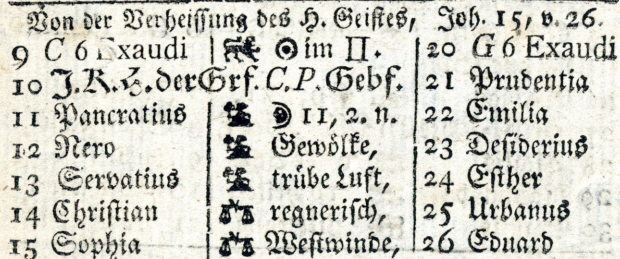 Von der Verheissung des H. Geistes, Joh. 15, v. 26.
9 C 6 Exaudi ☉ im II. 20 G 6 Exaudi
10 J. K. H. der Grf. C. P. Gebf. 21 Prudentia
11 Pancratius ☽ 11, 2. n. 22 Emilia
12 Nero Gewölke, 23 Desiderius
13 Servatius trübe Luft, 24 Esther
14 Christian regnerisch, 25 Urbanus
15 Sophia Westwinde, 26 Eduard